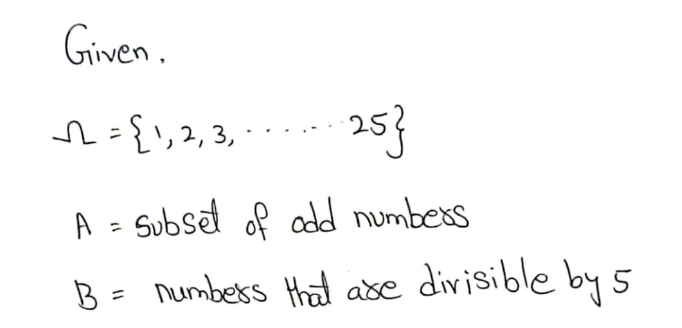 Given.
Ω = {1, 2, 3, ........ 25}
A = subset of odd numbers
B = numbers that are divisible by 5